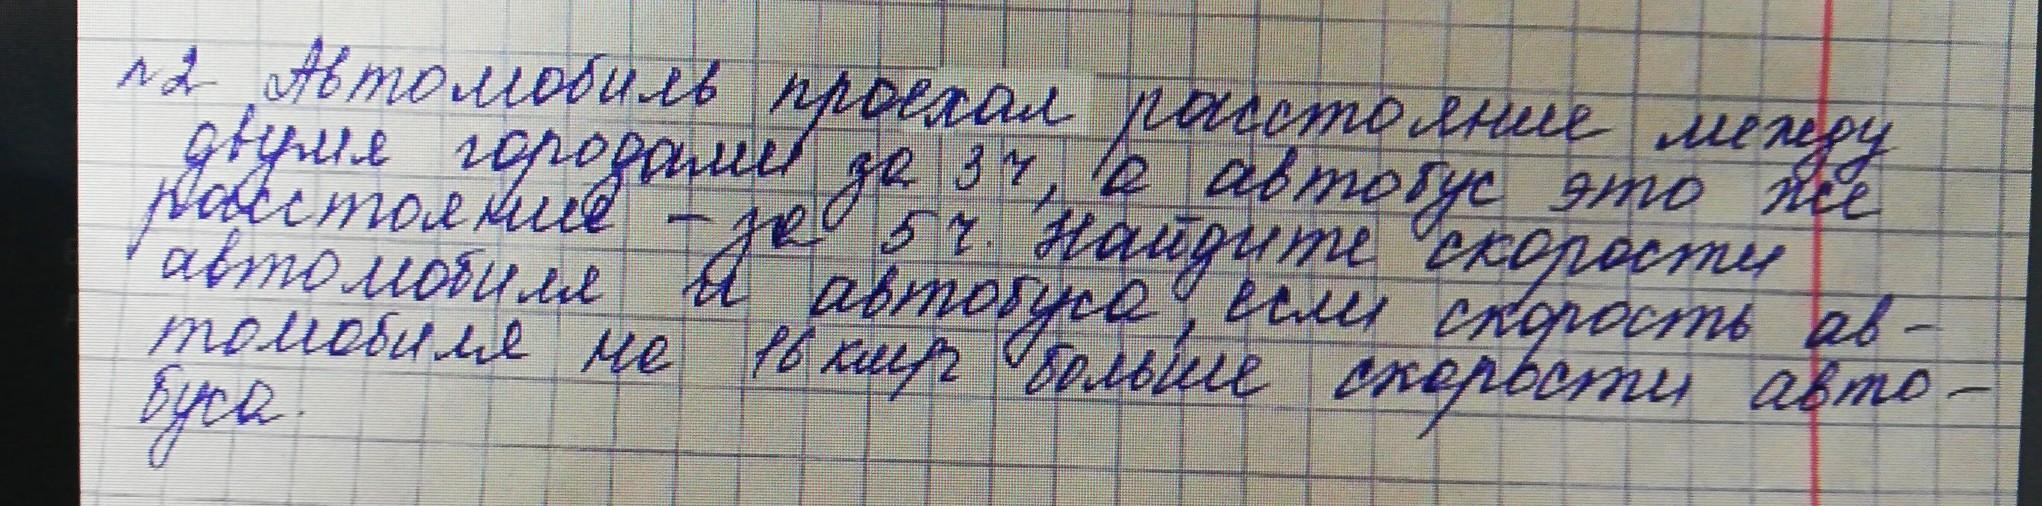 №2 Автомобиль проехал расстояние между
двумя городами за 3 ч, а автобус это же
расстояние – за 5 ч. Найдите скорости
автомобиля и автобуса, если скорость ав-
томобиля на 16 км/ч больше скорости авто-
буса.